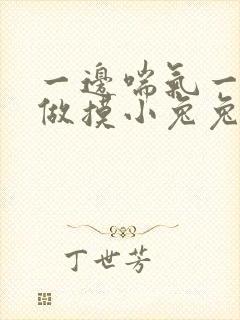 一邊喘氣一
做摸小兔兔
丁世芳